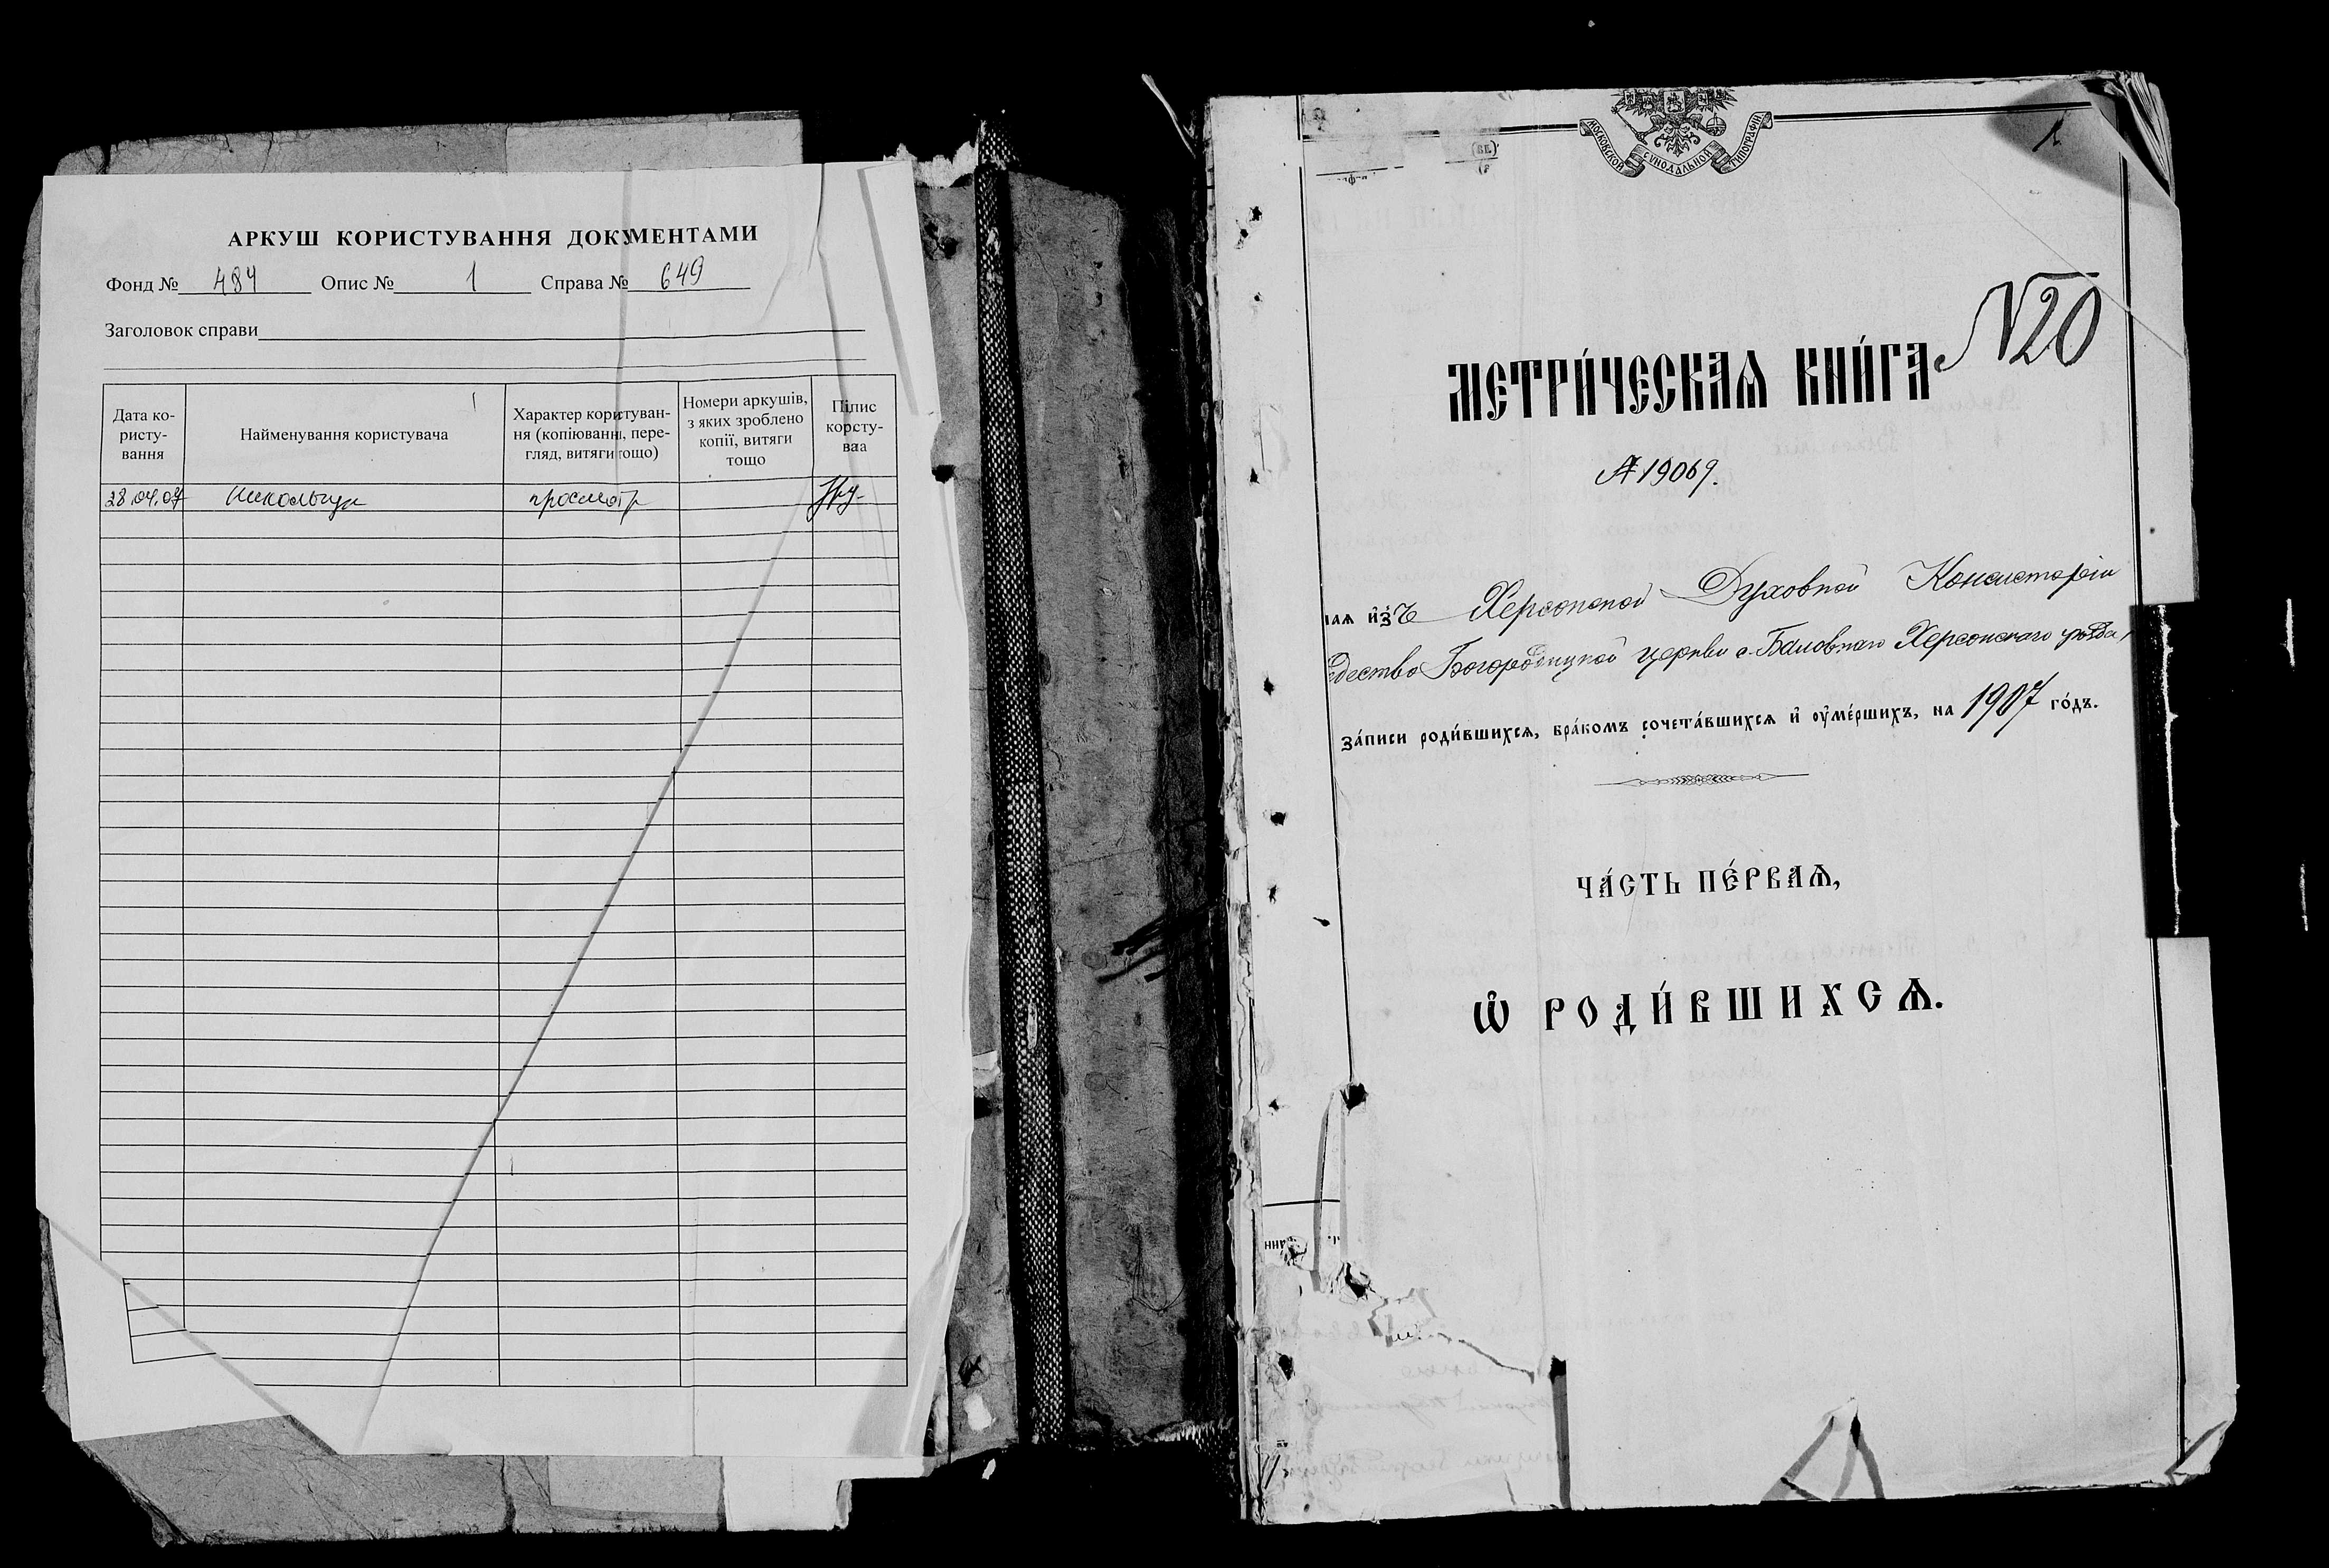 АРКУШ КОРИСТУВАННЯ ДОКУМЕНТАМИ
Фонд № 484 Опис № 1 Справа № 649
Заголовок справи
Дата ко-
ристу-
вання
Найменування користувача
Характер користуван-
ня (копіювання, пере-
гляд, витяги тощо)
Номери аркушів,
з яких зроблено
копії, витяги
тощо
Підпис
користу-
вача
28.04.07 просмотр
МОСКОВСКОЙ СУНОДАЛЬНОЙ ТИПОГРАФІИ
1
N20
МЕТРИ́ЧЕСКАѦ КНИ́ГА
№ 19069.
наѧ и҆зъ Херсонской Духовной Консисторіи
дество Богородицкой церкви с. Баловнаго Херсонскаго уѣзда,
за́писи роди́вшихсѧ, бра́комъ сочета́вшихсѧ и҆ оу҆ме́ршихъ, на 1907 го́дъ.
ЧА́СТЬ ПЕ́РВАѦ,
Ѽ РОДИ́ВШИХСѦ.